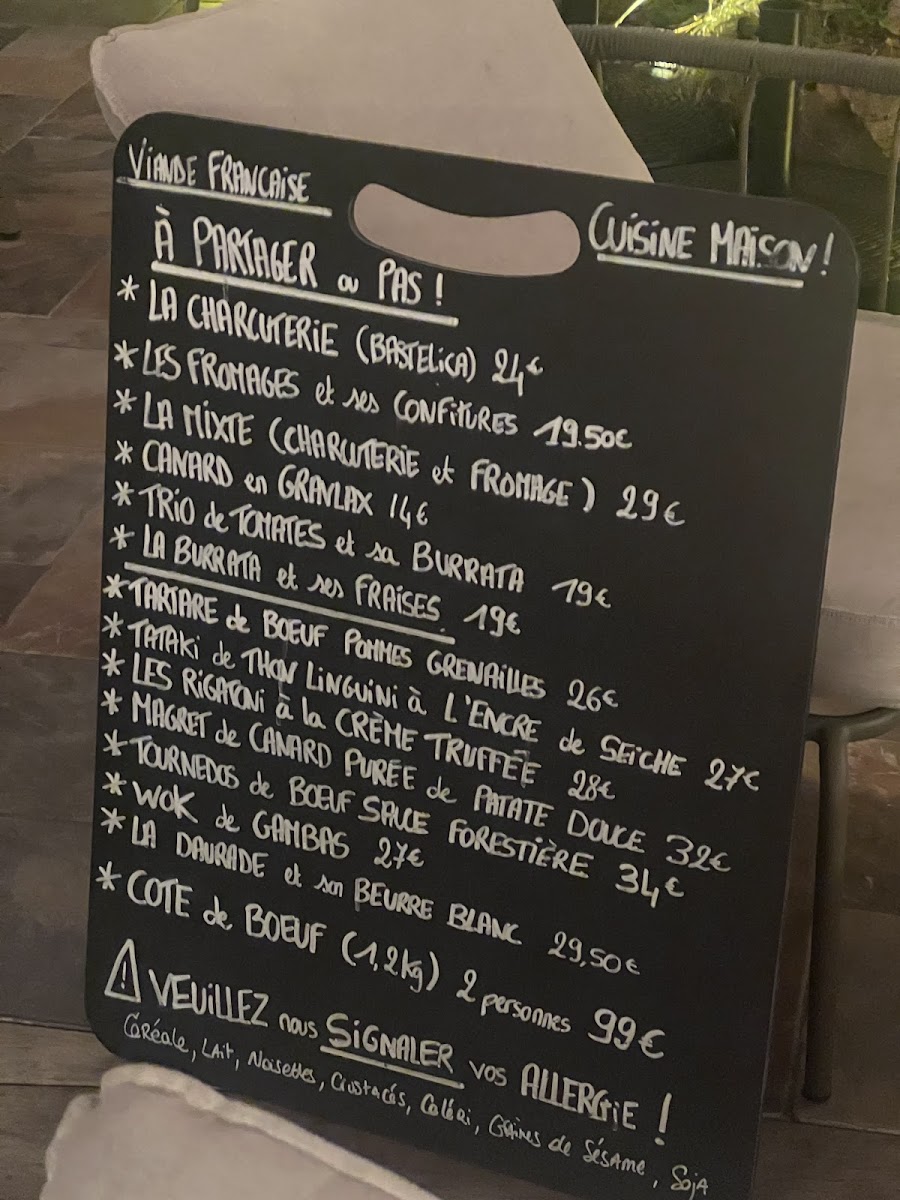 VIANDE FRANCAISE
CUISINE MAISON!
À PARTAGER ou PAS!
* LA CHARCUTERIE (BASTELICA) 24€
* LES FROMAGES et ses CONFITURES 19.50€
* LA MIXTE (CHARCUTERIE et FROMAGE) 29€
* CANARD en GRAVLAX 14€
* TRIO de TOMATES et sa BURRATA 19€
* LA BURRATA et ses FRAISES. 19€
* TARTARE de BOEUF POMMES GRENAILLES 26€
* TATAKI de THON LINGUINI à L'ENCRE de SEICHE 27€
* LES RIGATONI à la CRÈME TRUFFÉE 28€
* MAGRET de CANARD PUREE de PATATE DOUCE 32€
* TOURNEDOS de BOEUF SAUCE FORESTIÈRE 34€
* WOK de GAMBAS 27€
* LA DAURADE et son BEURRE BLANC 29,50€
* COTE de BOEUF (1,2kg) 2 personnes 99€
⚠ VEUILLEZ nous SIGNALER vos ALLERGIE!
Céréale, Lait, Noisettes, Crustacés, Céléri, Graines de Sésame, Soja